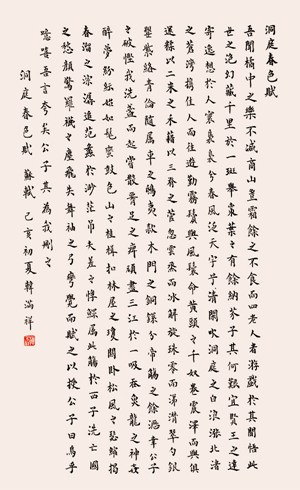 洞庭春色賦
吾聞橘中之樂不減商山豈霜餘之不食而四老人者游戲於其間悟此
世之泡幻藏千里於一班舉棗葉々有餘納芥子其何艱宜賢王之達
寄逸想於人寰裊裊兮春風泛天宇兮清閑吹洞庭之白浪漲北渚
之蒼灣攜佳人而往遊勤霧鬢與風鬟命黃頭々千奴卷震澤而與俱
還糅以二米之禾藉以三脊之菅忽雲烝而冰解旋珠零而涕潸翠勺銀
罌紫絡青倫隨属車之鴟夷款木門之銅鐶分帝觴之餘瀝幸公子
々破慳我洗盞而起嘗散腰足之痺頑盡三江於一吸吞魚龍之神姦
醉夢紛紜始如髦蠻鼓包山々桂楫扣林屋之瓊關卧松風々瑟縮揭
春溜之淙潺追范蠡於渺茫吊夫差々惸鰥属此觴於西子洗亡國
之愁顏驚羅襪々塵飛失舞袖之弓彎覺而賦之以授公子曰烏乎
噫嘻吾言夸矣公子其為我刪々
洞庭春色賦 蘇軾 己亥初夏韓滿祥